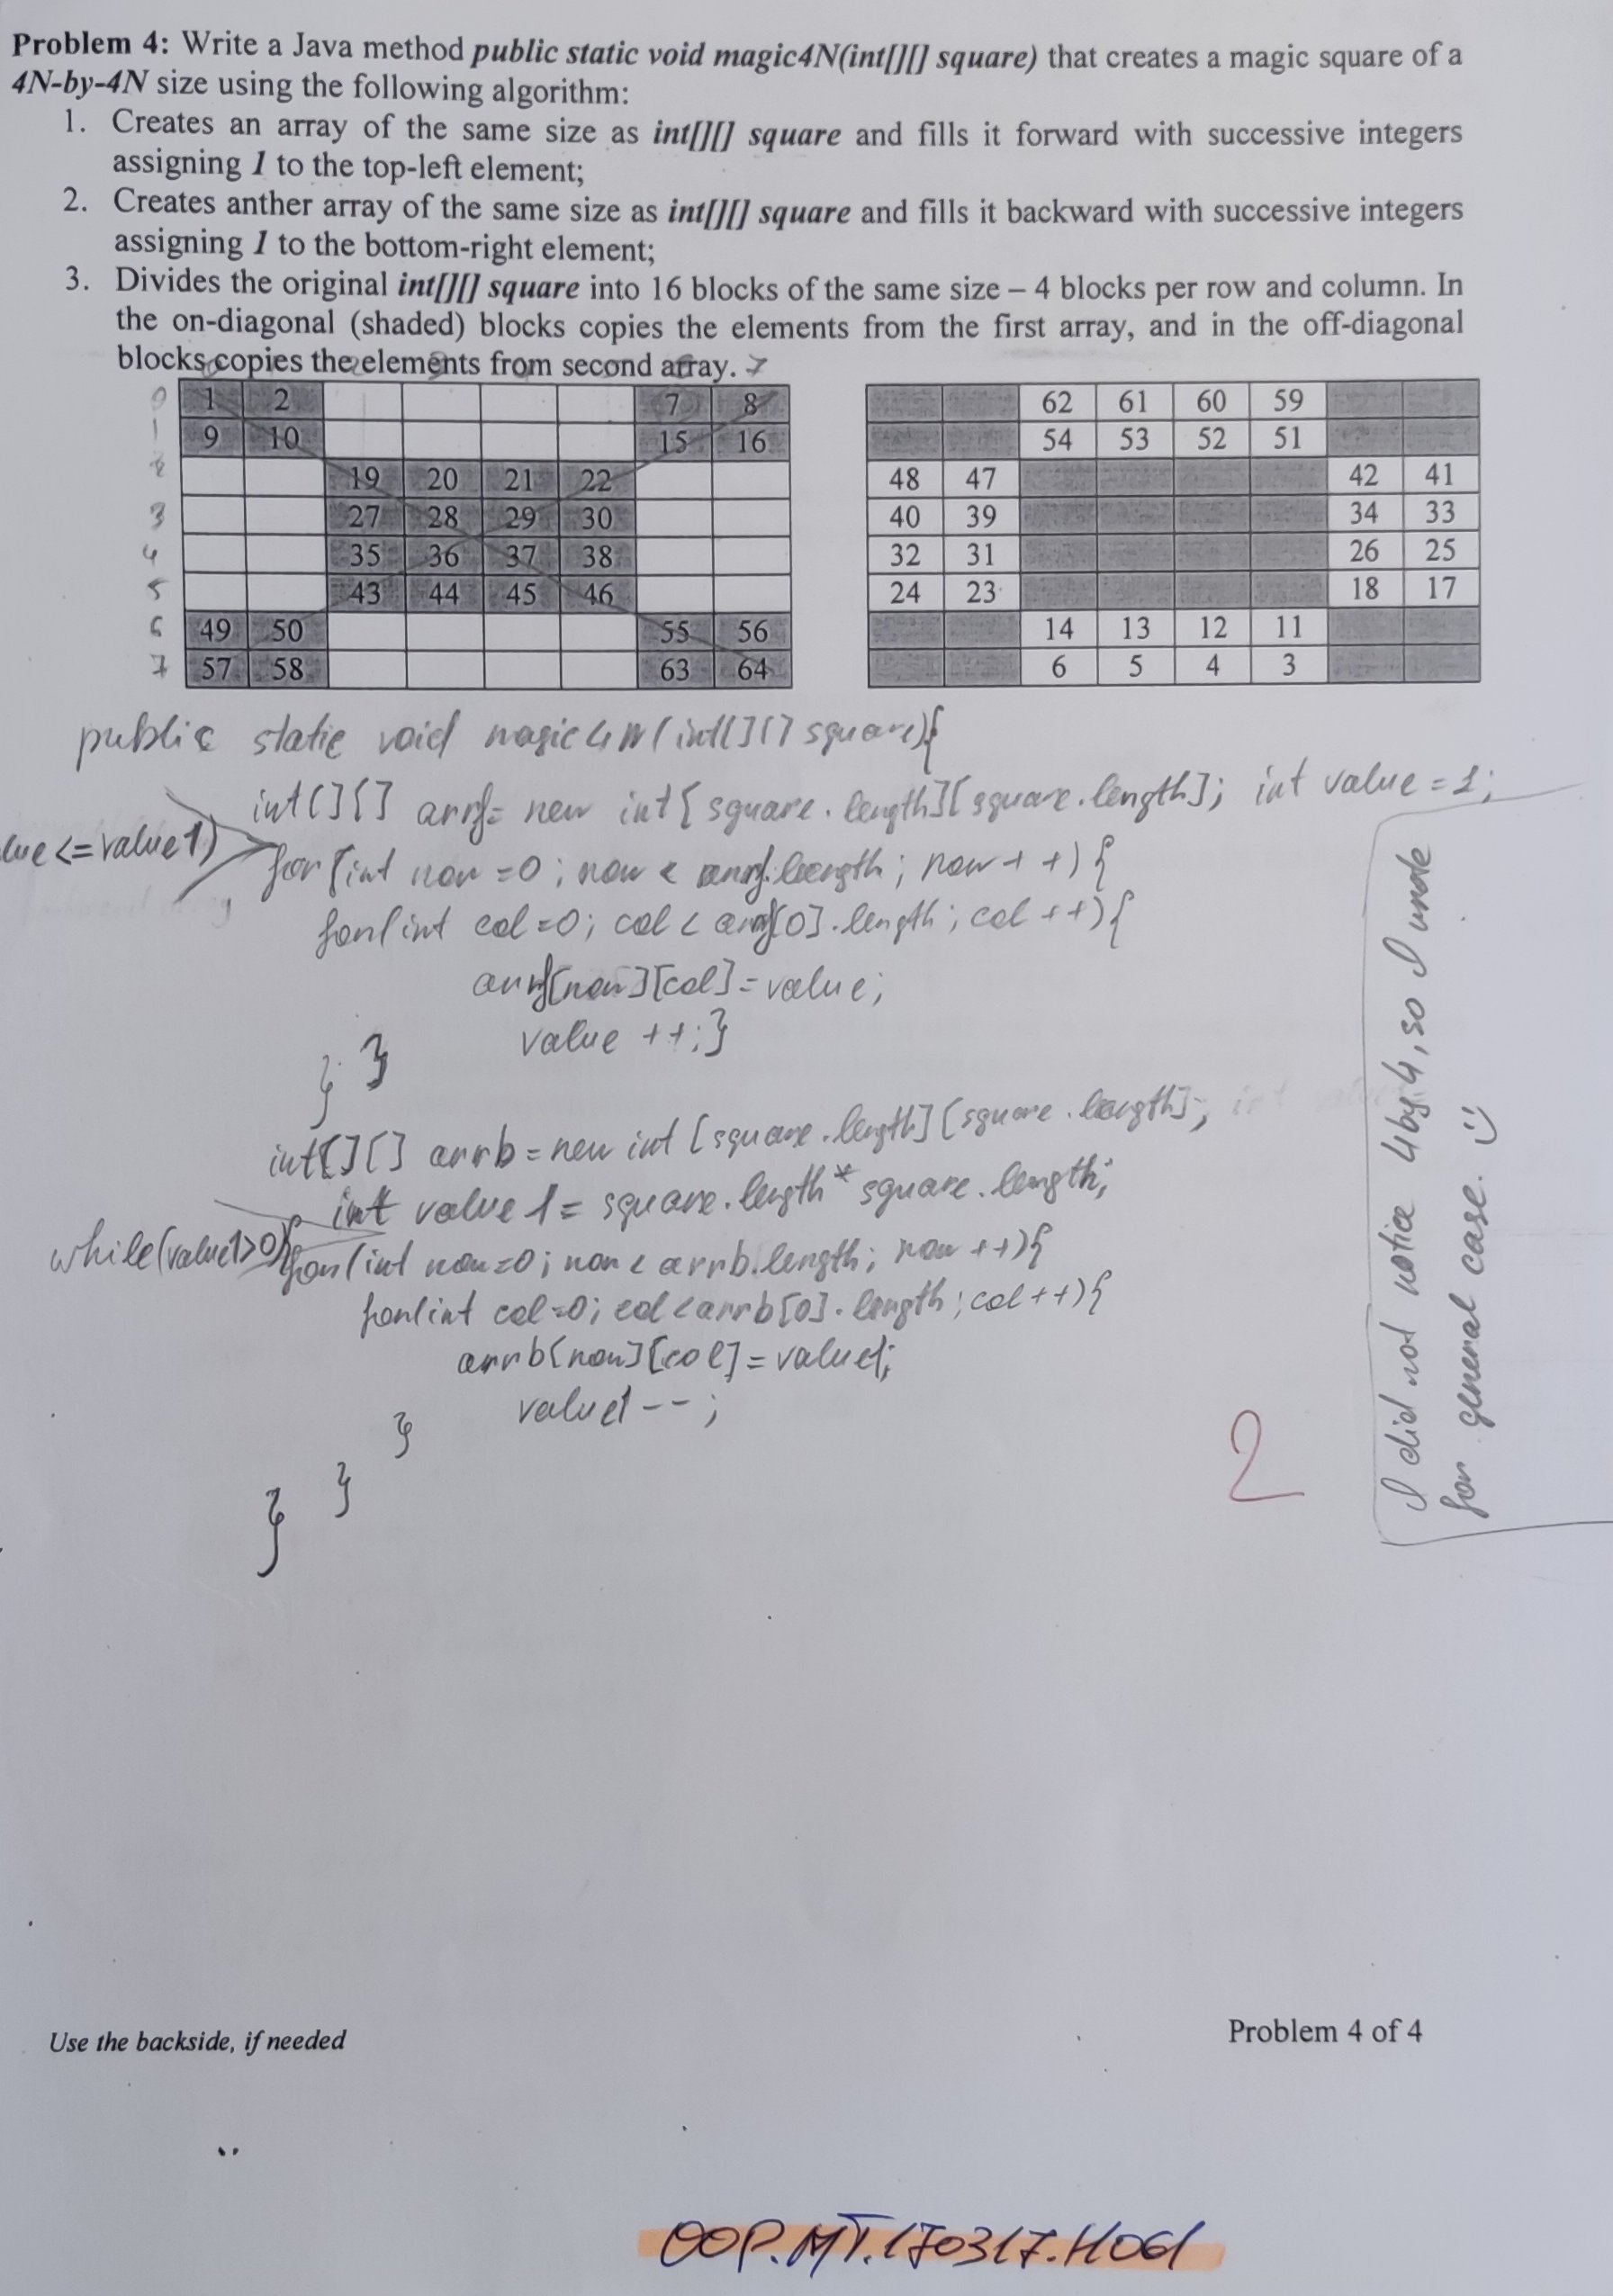 Problem 4: Write a Java method public static void magic4N(int[][] square) that creates a magic square of a
4N-by-4N size using the following algorithm:
1. Creates an array of the same size as int[][] square and fills it forward with successive integers
assigning 1 to the top-left element;
2. Creates anther array of the same size as int[][] square and fills it backward with successive integers
assigning 1 to the bottom-right element;
3. Divides the original int[][] square into 16 blocks of the same size – 4 blocks per row and column. In
the on-diagonal (shaded) blocks copies the elements from the first array, and in the off-diagonal
blocks copies the elements from second array. 7
0 1 2 7 8 62 61 60 59
1 9 10 15 16 54 53 52 51
2 19 20 21 22 48 47 42 41
3 27 28 29 30 40 39 34 33
4 35 36 37 38 32 31 26 25
5 43 44 45 46 24 23 18 17
6 49 50 55 56 14 13 12 11
7 57 58 63 64 6 5 4 3
public static void magic4N(int[][] square){
int[][] arrf= new int[square.length][square.length]; int value = 1;
lue <= value1)
for(int row =0; row < arrf.length; row++){
for(int col=0; col < arrf[0].length; col++){
arrf[row][col]=value;
value ++;}
} }
int[][] arrb=new int[square.length][square.length];
int value1= square.length*square.length;
while(value1>0){ for(int row=0; row < arrb.length; row ++){
for(int col=0; col<arrb[0].length; col++){
arrb[row][col]=value1;
value1--;
}
}
}
2
I did not notice 4by4, so I wrote
for general case. :)
Use the backside, if needed
Problem 4 of 4
OOP.MT.170317.H061